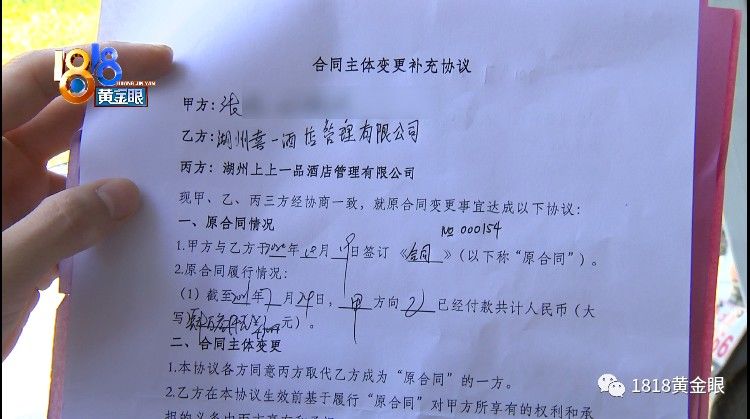 1818
HUANG JIN YAN
黄金眼
合同主体变更补充协议
甲方：张
乙方：湖州喜一酒店管理有限公司
丙方：湖州上上一品酒店管理有限公司
现甲、乙、丙三方经协商一致，就原合同变更事宜达成以下协议：
一、原合同情况
№ 000154
1.甲方与乙方于年10月19日签订《合同》（以下称“原合同”）。
2.原合同履行情况：
（1）截至年7月29日，甲方向乙已经付款共计人民币（大
写元）。
二、合同主体变更
1.本协议各方同意丙方取代乙方成为“原合同”的一方。
2.乙方在本协议生效前基于履行“原合同”对甲方所享有的权利和承
担的义务由丙方享有和承担
1818黄金眼